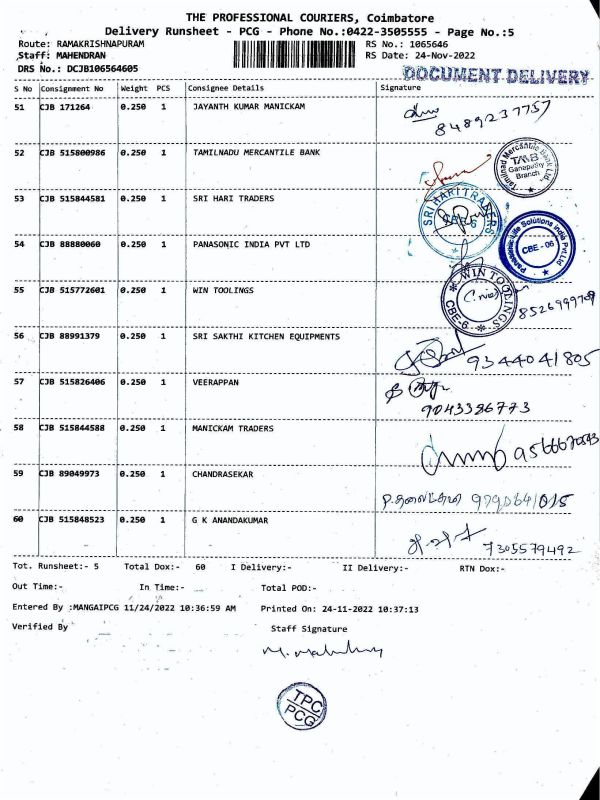 THE PROFESSIONAL COURIERS, Coimbatore
Delivery Runsheet - PCG - Phone No.:0422-3505555 - Page No.:5
Route: RAMAKRISHNAPURAM RS No.: 1065646
Staff: MAHENDRAN RS Date: 24-Nov-2022
DRS No.: DCJB106564605 DOCUMENT DELIVERY
S No Consignment No Weight PCS Consignee Details Signature
51 CJB 171264 0.250 1 JAYANTH KUMAR MANICKAM
8489237757
52 CJB 515800986 0.250 1 TAMILNADU MERCANTILE BANK
Tamilnad Mercantile Bank Ltd.
TMB
Ganapathy
Branch
53 CJB 515844581 0.250 1 SRI HARI TRADERS
SRI HARI TRADERS
CBE-6
54 CJB 88880060 0.250 1 PANASONIC INDIA PVT LTD
Panasonic Life Solutions India Pvt.Ltd
CBE - 06
55 CJB 515772601 0.250 1 WIN TOOLINGS
WIN TOOLINGS
CBE-6
56 CJB 88991379 0.250 1 SRI SAKTHI KITCHEN EQUIPMENTS
9344041805
57 CJB 515826406 0.250 1 VEERAPPAN
9043386773
58 CJB 515844588 0.250 1 MANICKAM TRADERS
59 CJB 89049973 0.250 1 CHANDRASEKAR
60 CJB 515848523 0.250 1 G K ANANDAKUMAR
7305579492
Tot. Runsheet:- 5 Total Dox:- 60 I Delivery:- II Delivery:- RTN Dox:-
Out Time:- In Time:- Total POD:-
Entered By :MANGAIPCG 11/24/2022 10:36:59 AM Printed On: 24-11-2022 10:37:13
Verified By Staff Signature
TPC
PCG